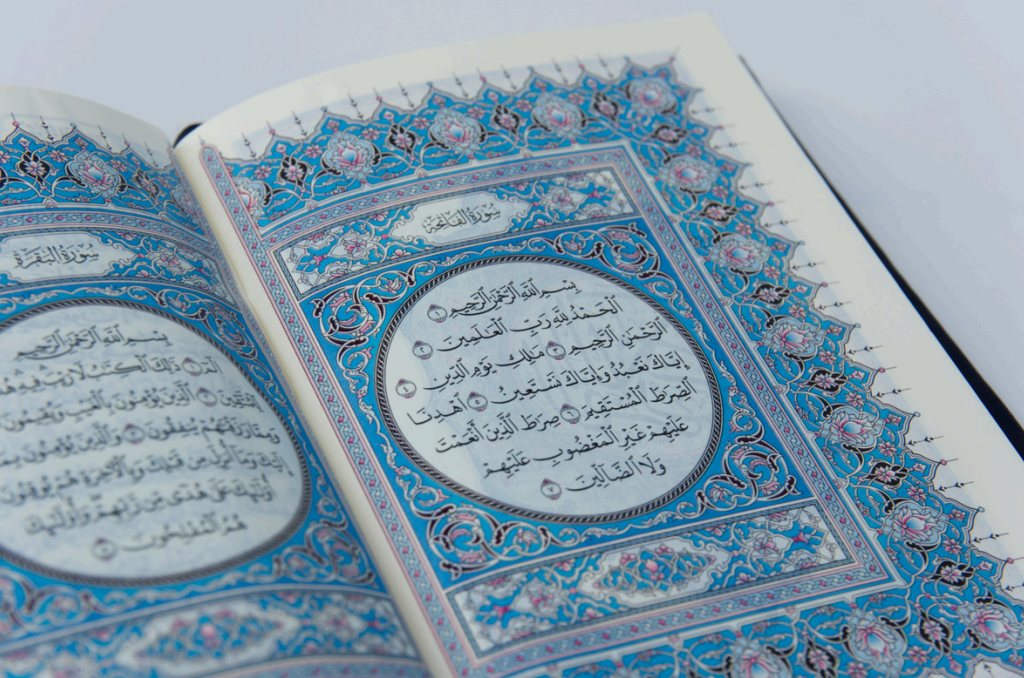 سُورَةُ الفَاتِحَةِ
بِسْمِ ٱللَّهِ ٱلرَّحْمَٰنِ ٱلرَّحِيمِ ١
ٱلْحَمْدُ لِلَّهِ رَبِّ ٱلْعَٰلَمِينَ ٢
ٱلرَّحْمَٰنِ ٱلرَّحِيمِ ٣ مَٰلِكِ يَوْمِ ٱلدِّينِ ٤
إِيَّاكَ نَعْبُدُ وَإِيَّاكَ نَسْتَعِينُ ٥ ٱهْدِنَا
ٱلصِّرَٰطَ ٱلْمُسْتَقِيمَ ٦ صِرَٰطَ ٱلَّذِينَ أَنْعَمْتَ
عَلَيْهِمْ غَيْرِ ٱلْمَغْضُوبِ عَلَيْهِمْ
وَلَا ٱلضَّآلِّينَ ٧
سُورَةُ البَقَرَةِ
بِسْمِ ٱللَّهِ ٱلرَّحْمَٰنِ ٱلرَّحِيمِ
الٓمٓ ١ ذَٰلِكَ ٱلْكِتَٰبُ لَا رَيْبَ فِيهِ
لِّلْمُتَّقِينَ ٢ ٱلَّذِينَ يُؤْمِنُونَ بِٱلْغَيْبِ وَيُقِيمُونَ
وَمِمَّا رَزَقْنَٰهُمْ يُنفِقُونَ ٣ وَٱلَّذِينَ يُؤْمِنُونَ بِمَا
إِلَيْكَ وَمَآ أُنزِلَ مِن قَبْلِكَ وَبِٱلْءَاخِرَةِ هُمْ يُوقِنُونَ
أُو۟لَٰٓئِكَ عَلَىٰ هُدًى مِّن رَّبِّهِمْ وَأُو۟لَٰٓئِكَ
هُمُ ٱلْمُفْلِحُونَ ٥